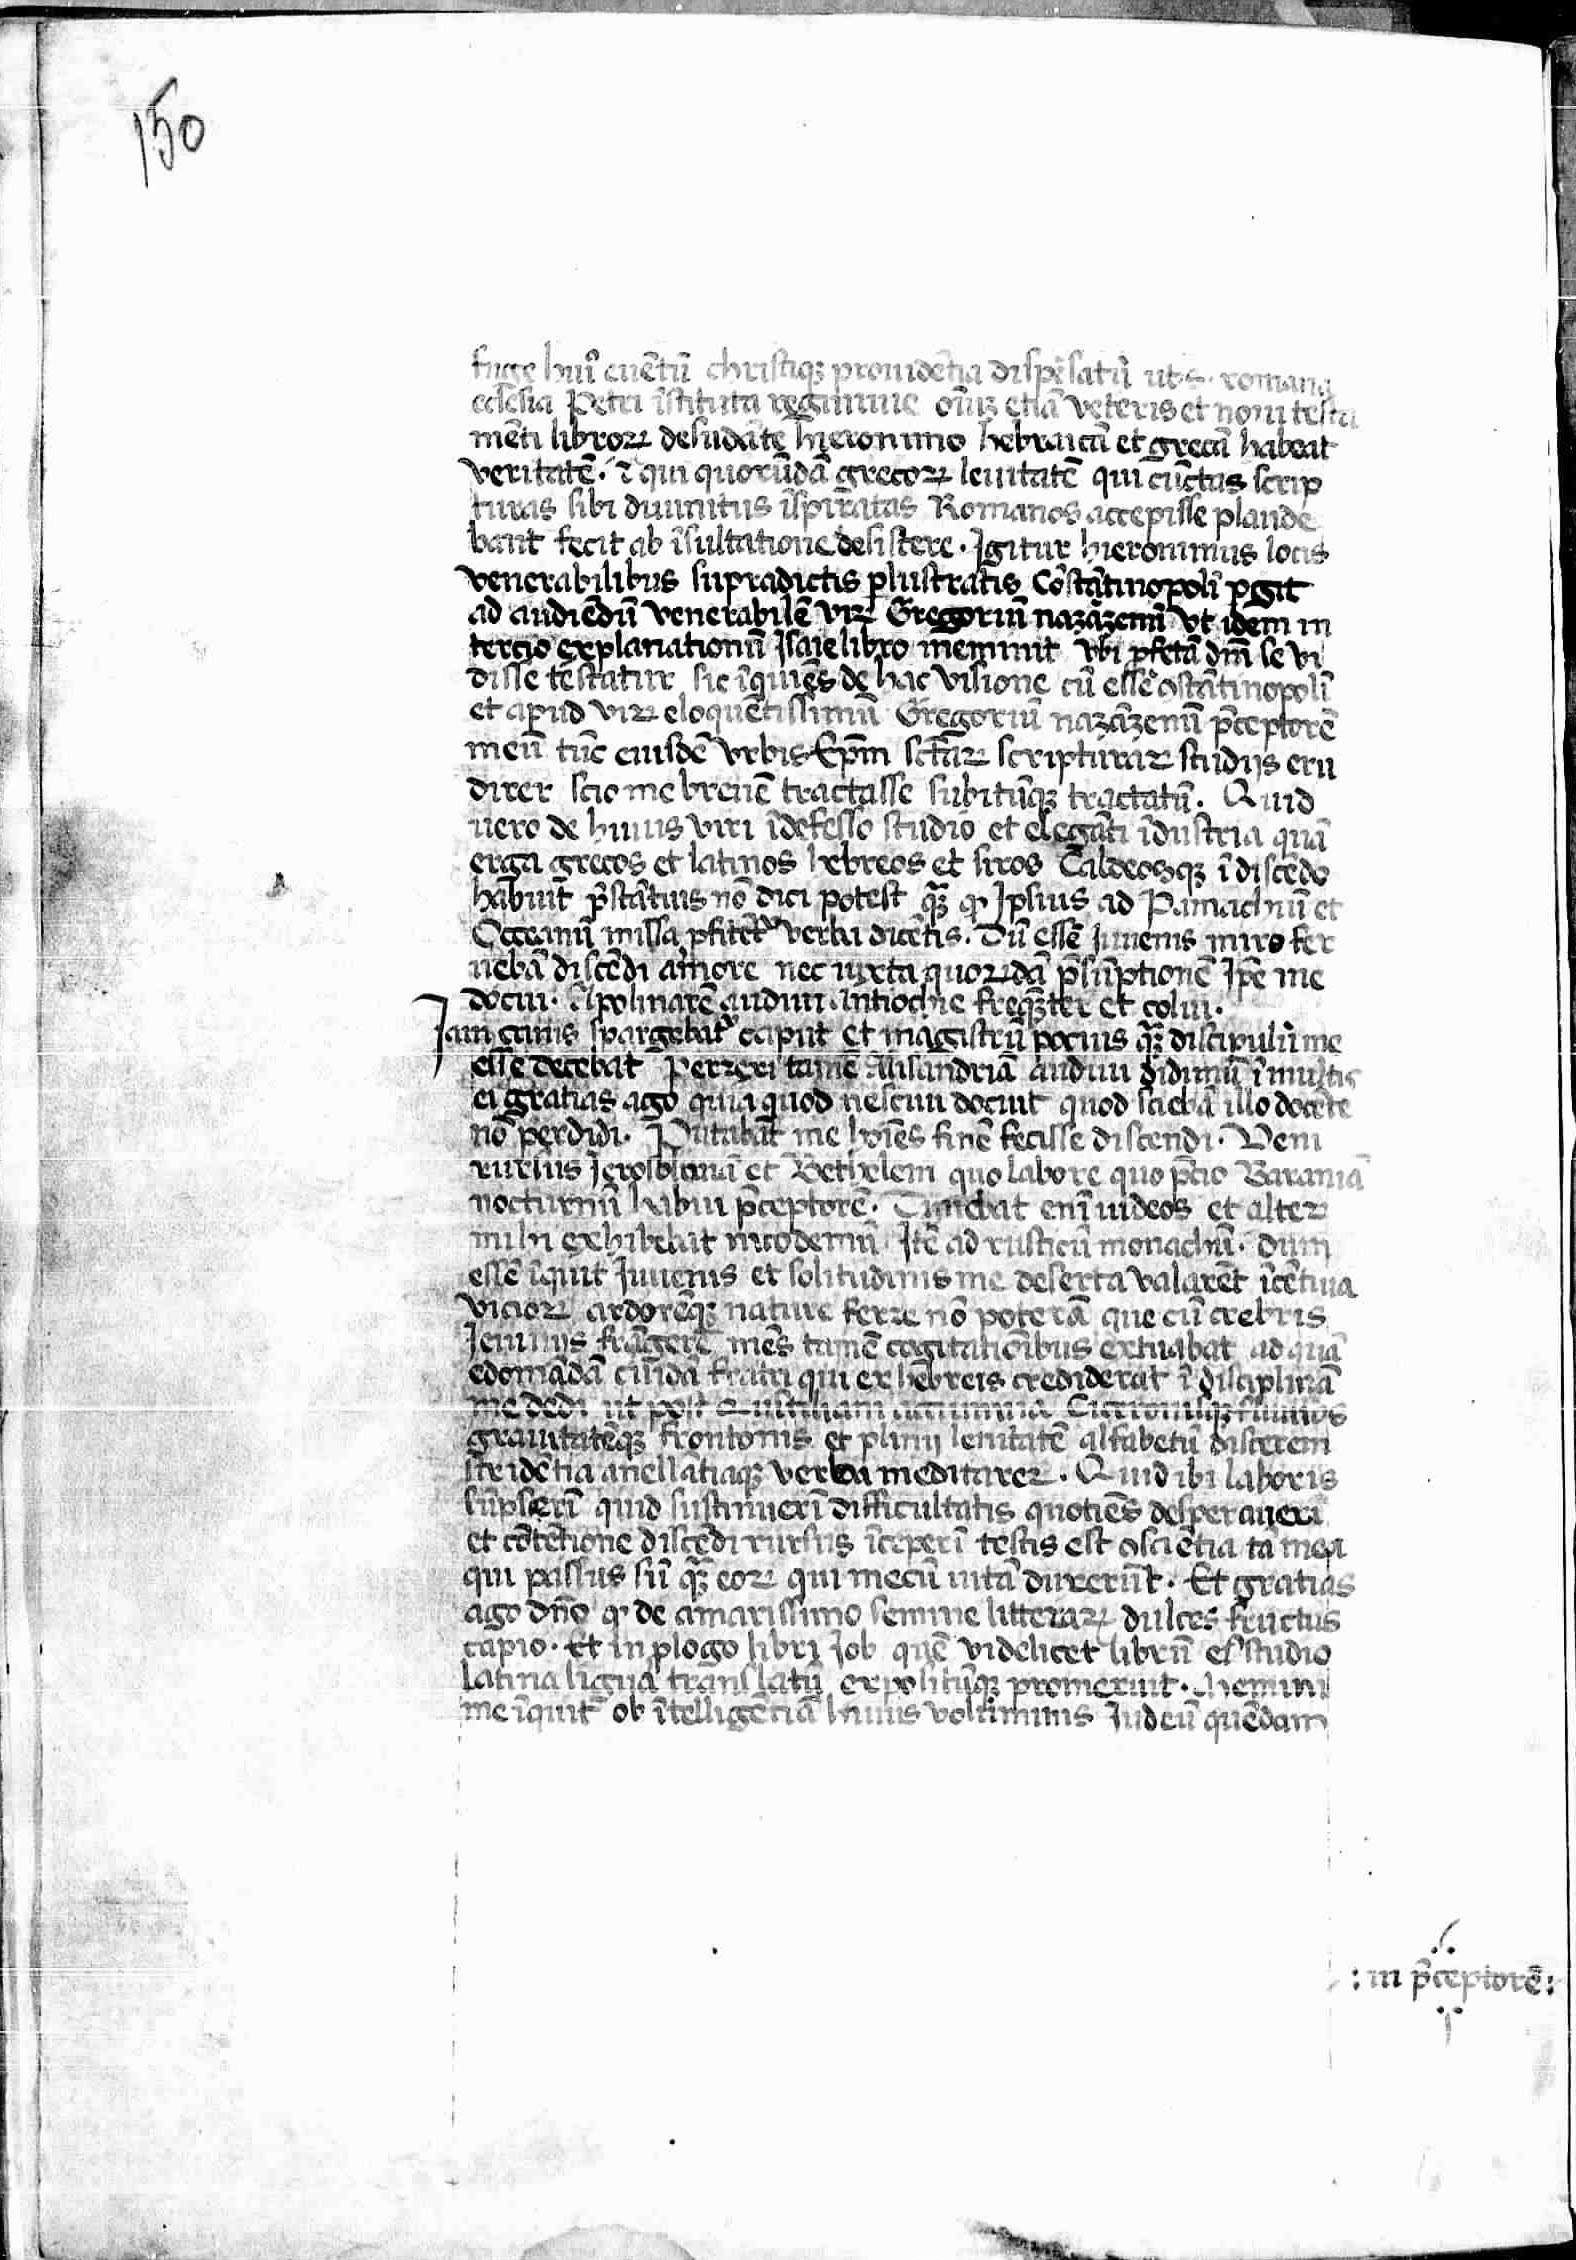 150
fuge huiꝰ euētū christiqꝫ prouidētia dispēsatū ut s. romana
ecclesia Petri īstituta regimine oīuꝫ etiā veteris et noui testa
mēti libroꝝ desudāte hieronimo hebraicā et grecā habeat
veritatē. qui quorūdā grecoꝝ leuitatē qui cūctas scrip
turas sibi diuinitus īspiratas Romanos accepisse plaude
bant fecit ab īsultatione desistere. Igitur hieronimus locis
venerabilibus supradictis ꝑlustratis Cōstātinopolī ꝑgit
ad audiēdū venerabilē viꝝ Gregoriū nazāzenū vt idem in
tercio explanationū Isaie libro meminit vbi ꝓfetā dn̄m se vi
disse testatur sic īquiēs de hac visione cū essē ꝯstātinopolī
et apud viꝝ eloquētissimū Gregoriū nazāzenū p̄ceptorē
meū tūc eiusdē vrbis Ep̄m sctāꝝ scripturaꝝ studijs eru
direr scio me breuē tractasse subitūqꝫ tractatū. Quid
uero de huius viri īdefesso studio et elegāti īdustria quā
erga grecos et latinos hebreos et siros Caldeosqꝫ ī discēdo
habuit p̄stātius nō dici potest qꝫ̄ ꝙ Ipsius ad Pamachiū et
Occeanū missa ꝓfitēt᷑ verba dicētis. Dū essē Iuuenis miro fer
uebā discēdi amore nec iuxta quoꝝdā p̄sūptionē Ip̄e me
docui. Apolinarē audiui Antiochie freqꝫ̄ter et colui.
Iam canis spargebat᷑ caput et magistrū pocius qꝫ̄ discipulū me
esse decebat Perrexi tamē Alisandriā audiui didimū ī multis
ei gratias ago quia quod nesciui docuit quod sciebā illo docēte
nō perdidi. Putabāt me hoīes finē fecisse discendi. Veni
rursus Ierosolimā et Bethelem quo labore quo p̄cio Baraniā
nocturnū habui p̄ceptorē. Timebat enī iudeos et alteꝝ
mihi exhibebat nicodemū. Itē ad rusticū monachū. Dum
essē īquit Iuuenis et solitudinis me deserta valarēt īcētiua
vicioꝝ ardorēqꝫ nature ferre nō poterā que cū crebris
Ieiunijs frāgerē mēs tamē cogitatiōibus extuabat ad quā
edomādā cuidā fratri qui ex hebreis crediderat ī disciplinā
me dedi ut post Quītiliani acumina Ciceronisqꝫ fluuios
grauitatēqꝫ frontonis et plinij lenitatē alfabetū discerem
stridētia anellātiaqꝫ verba meditareꝝ. Quid ibi laboris
sūpserī quid sustinuerī difficultatis quotiēs desperauerī
et cōtētione discēdi rursus īceperī testis est ꝯsciētia tā mea
qui passus sū qꝫ̄ eoꝝ qui mecū uitā duxerūt. Et gratias
ago dn̄o ꝙ de amarissimo semine litteraꝝ dulces fructus
capio. Et in ꝓlogo libri Iob quē videlicet librū eiꝰ studio
latina ligua translatū expositūqꝫ promeruit. Memini
me īquit ob ītelligētiā huius voluminis Iudeū quēdam
: in p̄ceptorē :